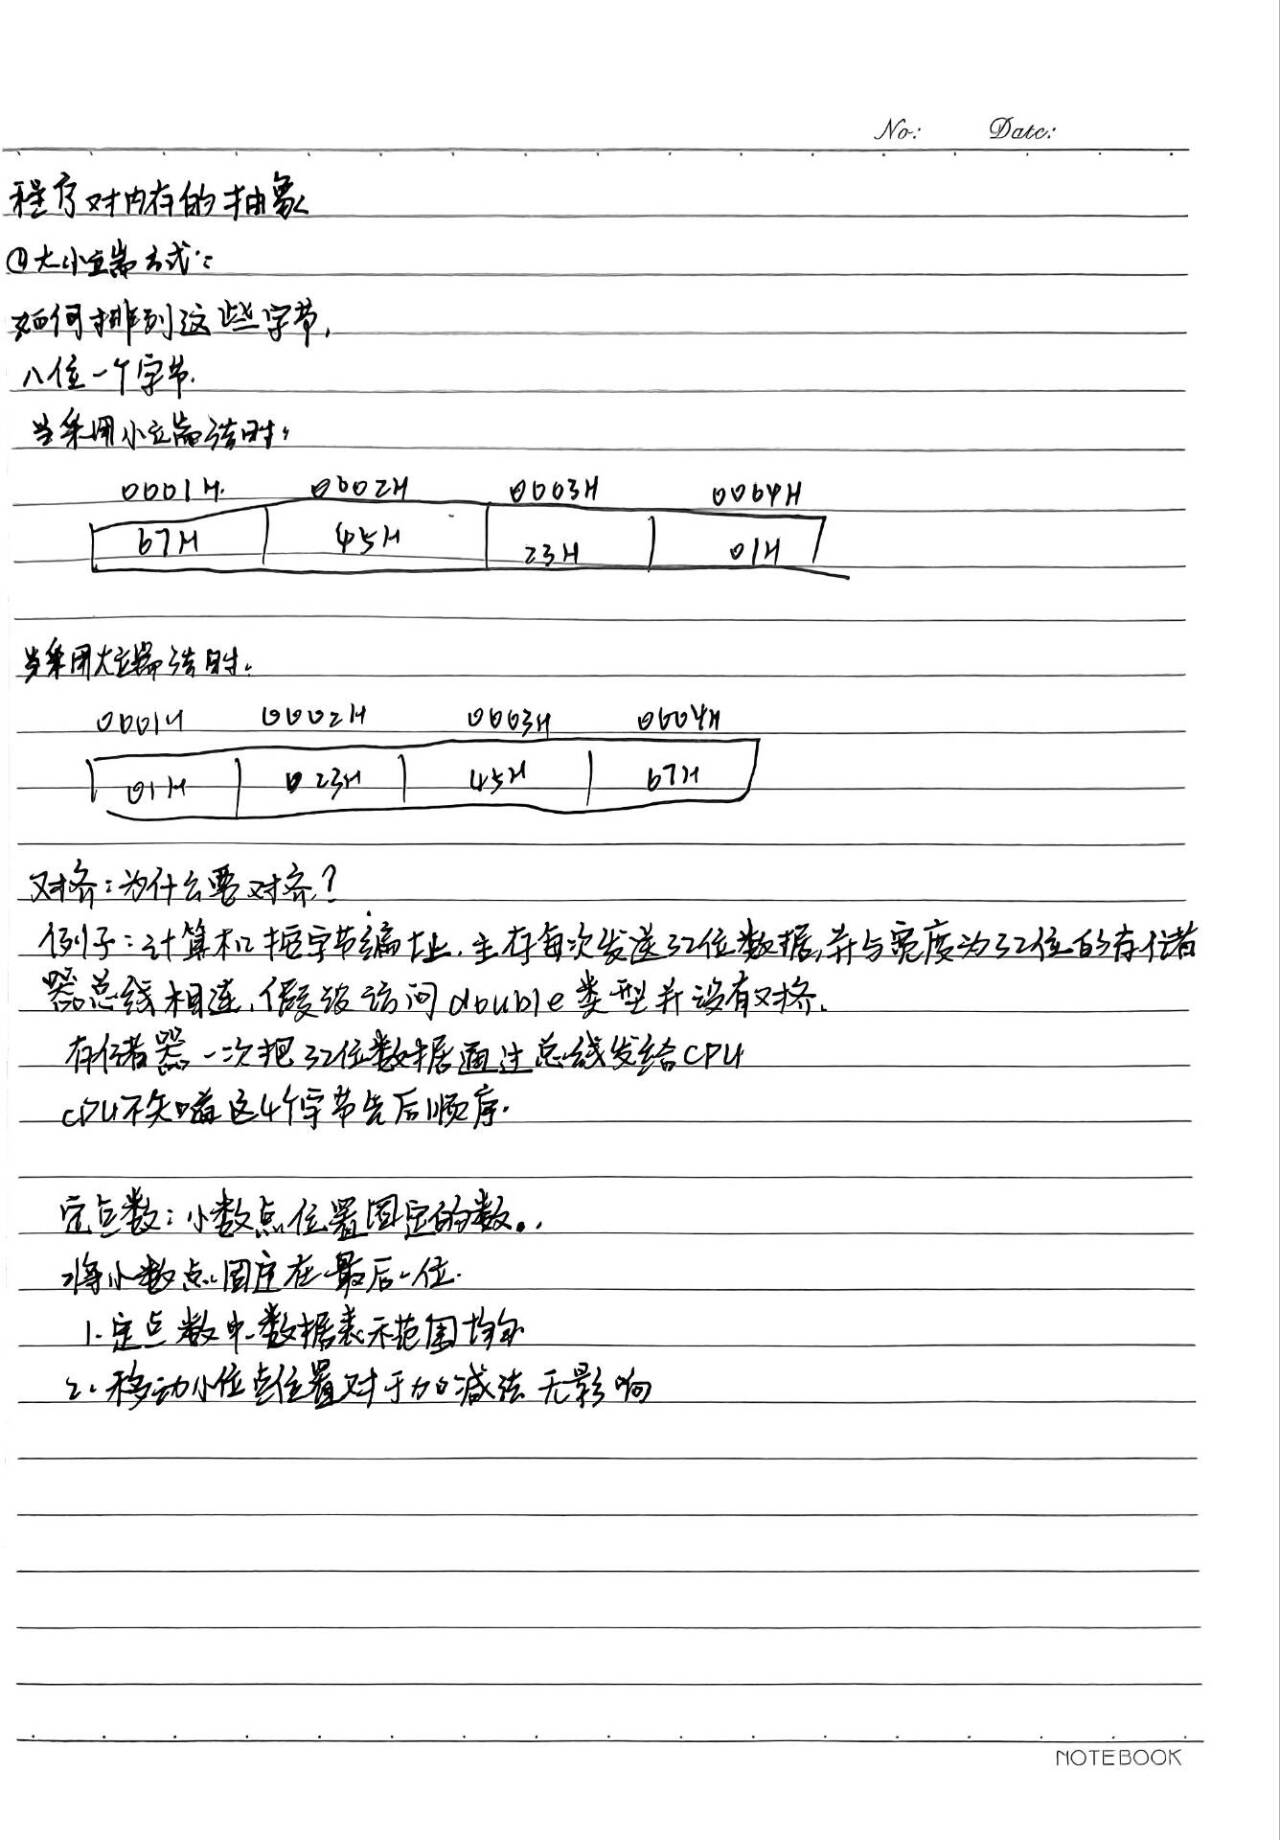 No: Date:
程序对内存的抽象
①大小端方式:
如何排列这些字节,
八位一个字节.
当采用小端法时,
0001H. 0002H 0003H 0004H
67H 45H 23H 01H
当采用大端法时.
0001H 0002H 0003H 0004H
01H 023H 45H 67H
对齐:为什么要对齐?
例子:计算机按字节编址.主存每次发送32位数据,并与宽度为32位的存储
器总线相连,假设访问double类型并没有对齐.
存储器一次把32位数据通过总线发给CPU
CPU不知道这4个字节先后顺序.
定点数:小数点位置固定的数.
将小数点固定在最后一位.
1.定点数中数据表示范围均匀
2.移动小位点位置对于加减法无影响
NOTEBOOK